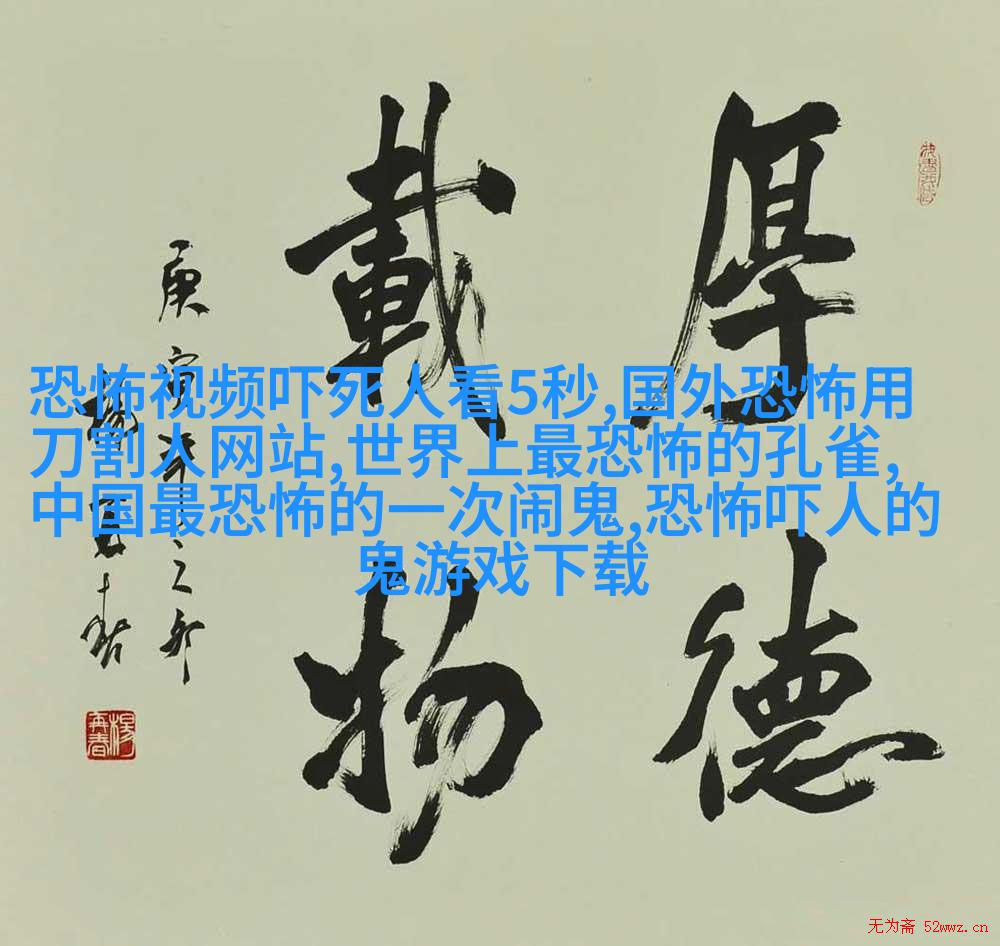 厚德
載物
庚寅年之卯
楊再春
楊再春
恐怖视频吓死人看5秒,国外恐怖用
刀割人网站,世界上最恐怖的孔雀,
中国最恐怖的一次闹鬼,恐怖吓人的
鬼游戏下载
无为斋 52wwz.cn